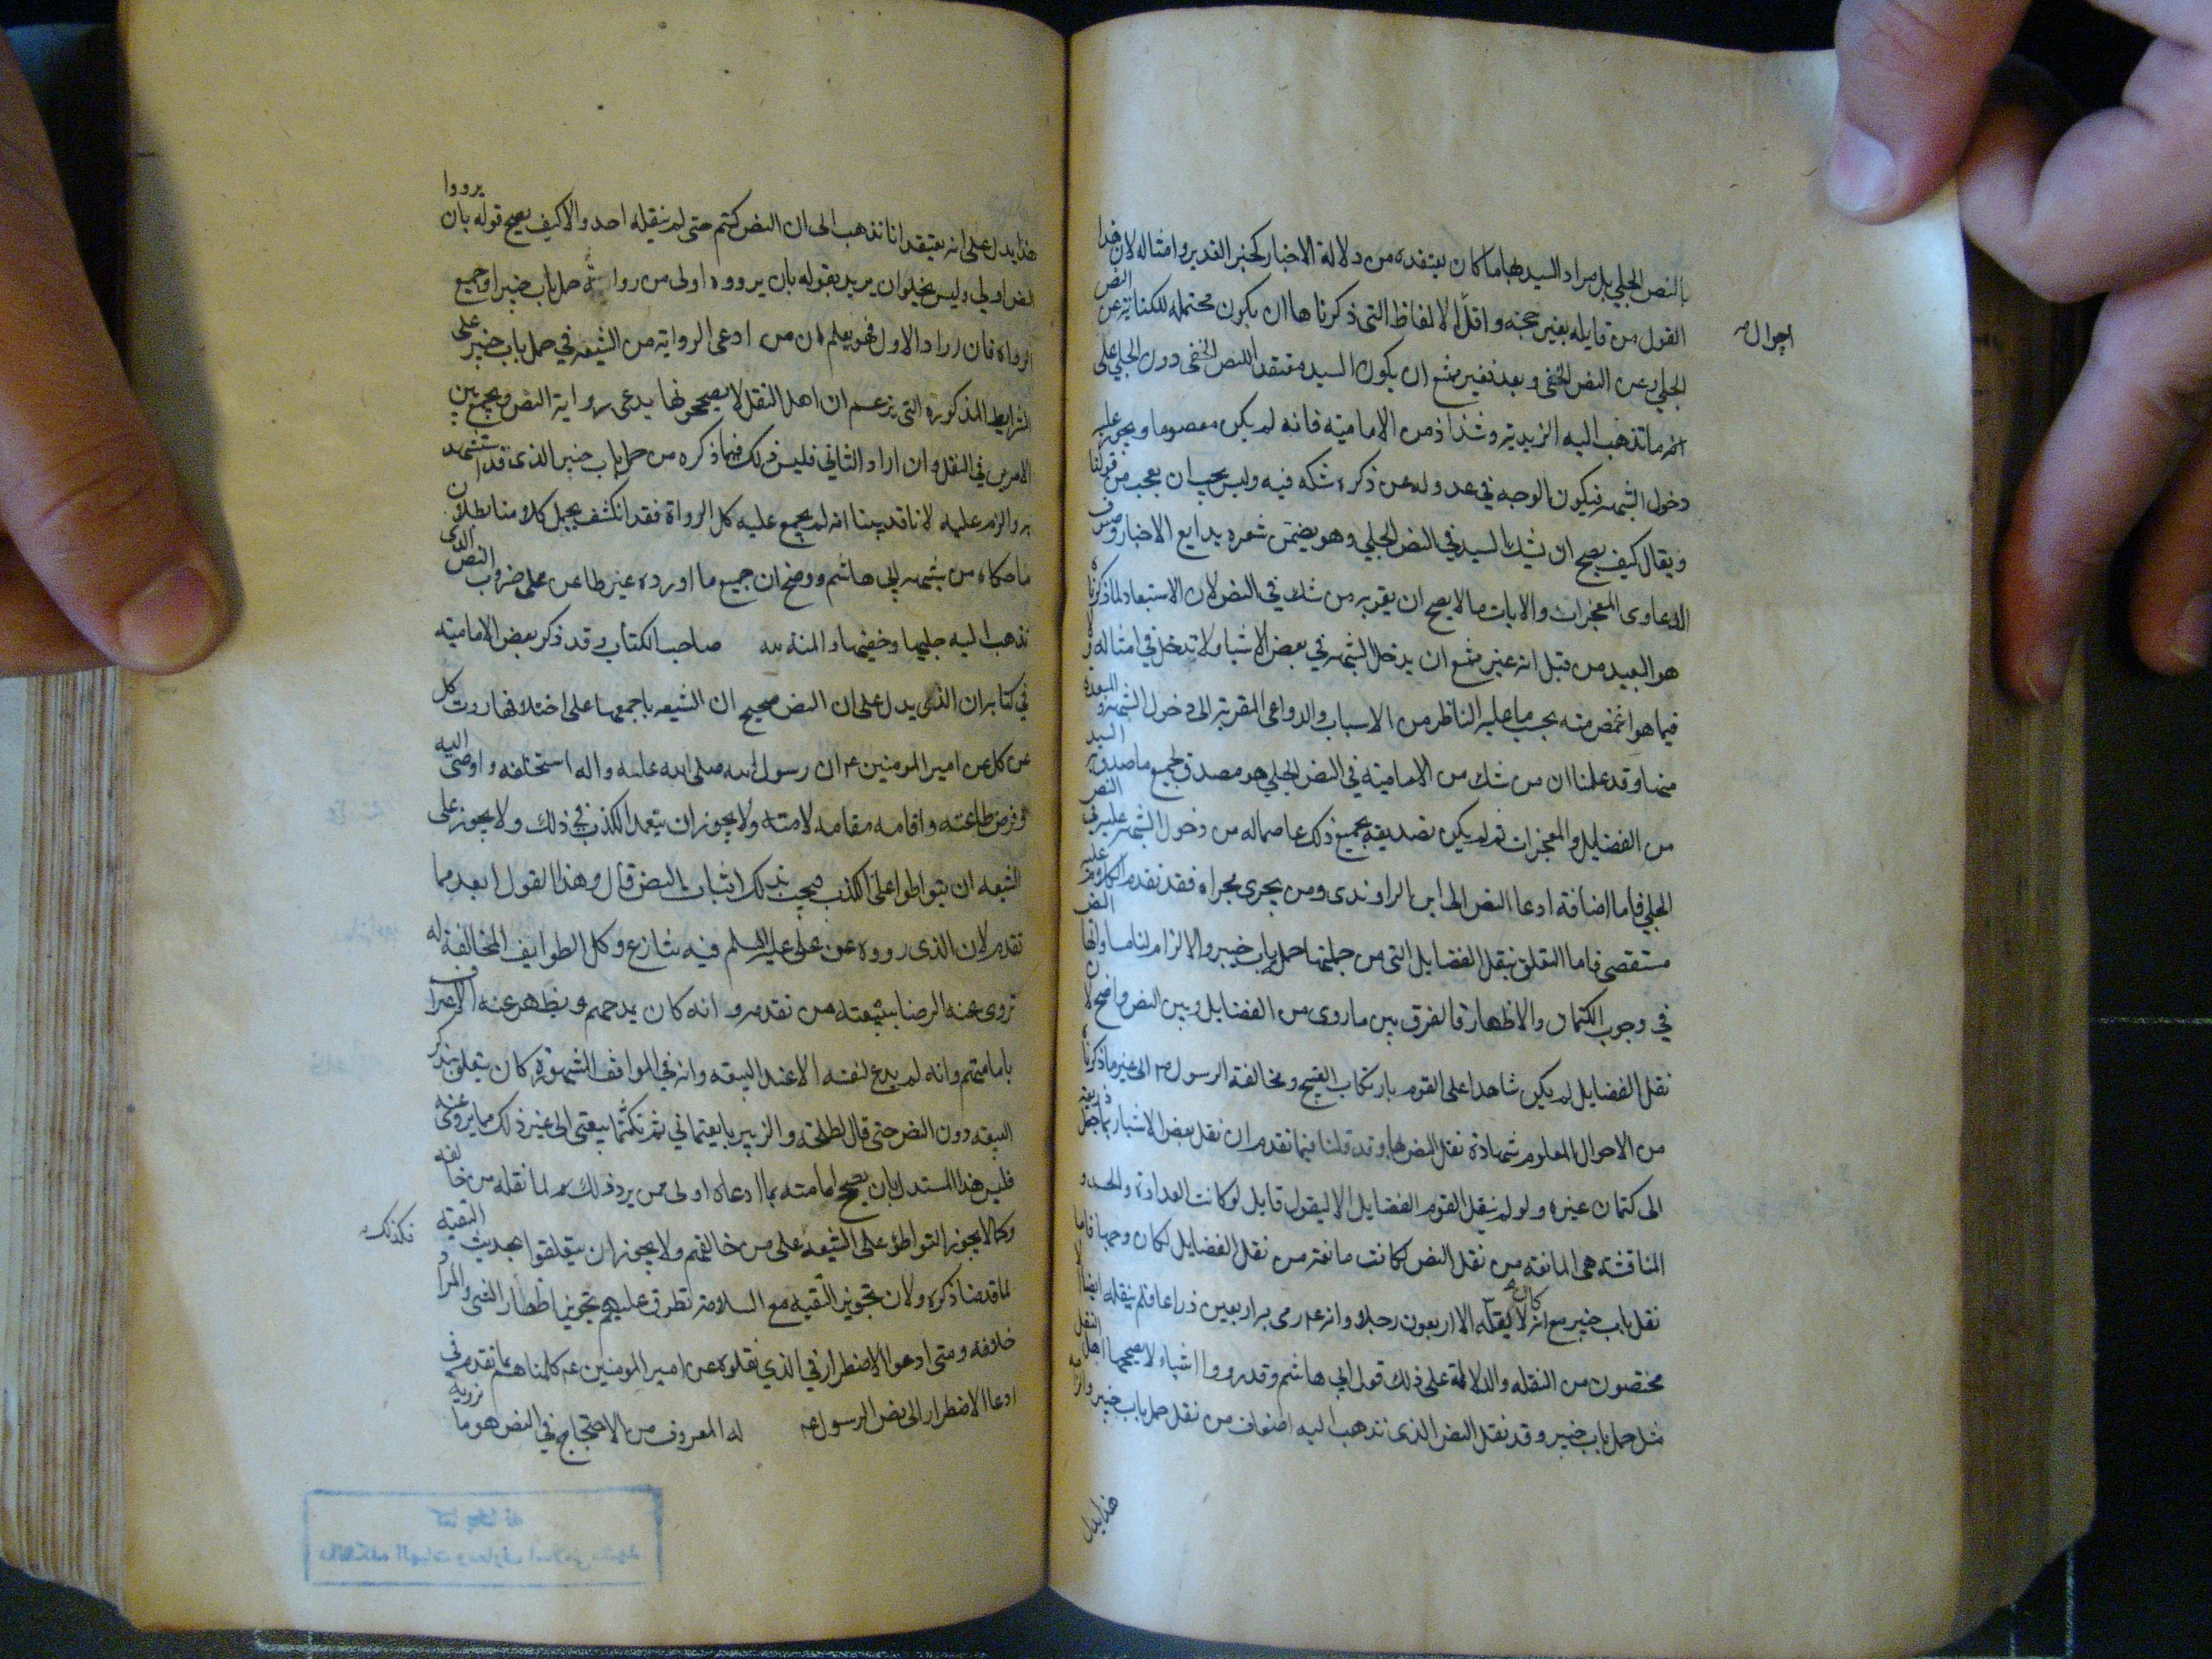 بالنص الجلي بل مراد السيد بها ما كان يعتقده من دلالة الاخبار كخبر الغدير وامثاله لان هذا
القول من قايله بغير حجة واقل الالفاظ التى ذكرناها ان يكون محتمله للكناية عن النص
احوال
الجلي وعن النص الخفى وبعد فغير ممتنع ان يكون السيد معتقد اللنص الخفى دون الجلي على
انه ما تذهب اليه الزيدية وشذاذ من الامامية فانه لم يكن معصوما ويجوز عليه
دخول الشبهه فيكون الوجه في عدوله عن ذكره شكه فيه وليس يجب ان يعجب من قولنا
ويقال كيف يصح ان يشك السيد في النص الجلي وهو يضمن شعره بدايع الاخبار وصنوف
الدعاوى المعجزات والايات ما لا يصح ان يقربه من شك في النص لان الاستبعاد لما ذكرناه
هو البعيد من قبل انه غير ممتنع ان يدخل الشبهه في بعض الاشياء ولا تدخل في امثاله و
فيما هو اغمض منه بحسب ما عليه الناظر من الاسباب والدواعى المقربة الى دخول الشبهة و المبعدة
منها وقد علمنا ان من شك من الامامية في النص الجلي هو مصدق لجميع ما صدق به السيد
من الفضايل والمعجزات ثم لم يكن تصديقه بجميع ذلك عاصما له من دخول الشبهه عليه في النص
الجلي فاما اضافة ادعا النص الى ابن الراوندى ومن يجرى مجراه فقد تقدم الكلام عليه
مستقصى فاما التعلق بنقل الفضايل التى من جملتها حمل باب خيبر والالزام لنا مساواتها النص
في وجوب الكتمان والاظهار فالفرق بين ما روى من الفضايل وبين النص واضح لان
نقل الفضايل لم يكن شاهدا على القوم بارتكاب القبيح ومخالفة الرسول ص الى غير ما ذكرناه
من الاحوال المعلوم شهادة نقل النص بها وقد قلنا فيما تقدم ان نقل بعض الاشياء ربما جعل ذريعة
الى كتمان غيره ولو لم ينقل القوم الفضايل الا ليقول قايل لو كانت العداوة والحسد و
المنافسة هى المانعة من نقل النص لكانت مانعة من نقل الفضايل لكان وجها فاما
نقل باب خيبر مع انه كان لا يقله الا اربعون رجلا وانه ع رمى به اربعين ذراعا فلم ينقله ايضا الا
مختصون من النقله والدلالة على ذلك قول ابي هاشم وقد رووا اشياء لا يصححها اهل النقل
مثل حمل باب خيبر وقد نقل النص الذى نذهب اليه اضعاف من نقل حمل باب خيبر و
هذا يدل
هذا يدل على انه يعتقد انا نذهب الى ان النص كتم حتى لم ينقله احد والا كيف يصح قوله بان يرووا
النص اولى وليس يخلو ان يريد بقوله بان يرووه اولى من رواية حمل باب خيبر او جميع
الرواه فان اراد الاول فهو يعلم ان من ادعى الرواية من الشيعه في حمل باب خيبر على
الشرايط المذكورة التى يزعم ان اهل النقل لا يصححونها يدعى رواية النص ويجمع بين
الامرين في النقل وان اراد الثاني فليس ذلك فيما ذكره من حمل باب خيبر الذى قد استشهد
به والزم عليه لانا قد بينا انه لم يجمع عليه كل الرواة فقد انكشف بجمل كلامنا بطلان
ما حكاه من شبهه ابي هاشم ووضح ان جميع ما اورده غير طاعن على ضروب النص الذى
نذهب اليه جليها وخفيها والمنة لله صاحب الكتاب وقد ذكر بعض الامامية
في كتابه ان الذى يدل على ان النص صحيح ان الشيعه باجمعها على اختلافها روت كل
عن كل عن امير المومنين ع ان رسول الله صلى الله عليه واله استخلفه واوصى اليه
وفرض طاعته واقامه مقامه لامته ولا يجوز ان يتعمد الكذب في ذلك ولا يجوز على
الشيعه ان يتواطوا على الكذب فيجب بذلك اثبات النص قال وهذا القول ابعد مما
تقدم لان الذى رووه عن على عليه السلم فيه تنازع وكل الطوايف المخالفة له
تروى عنه الرضا ببيعته من تقدم وانه كان يمدحهم ويظهر عنه الاعتراف
بامامتهم وانه لم يدع لنفسه الا عند البيعه وانه في المواقف المشهورة كان يتعلق بذكر
البيعه دون النص حتى قال لطلحة والزبير بايعتماني ثم نكثتما بيعتى الى غير ذلك مما يروى عنه
فليس هذا المستدل بان يصحح امامته بما ادعاه اولى ممن يرد ذلك لما نقله من خالفه
وكما لا يجوز التواطؤ على الشيعة على من خالفهم ولا يجوز ان يتعلقوا بحديث التقية
فكذلك
لما قدمنا ذكره ولان تجويز التقيه مع السلامة تطرق عليهم تجويز اظهار الشى والمراد
خلافه ومتى ادعوا الاضطرار في الذي نقلوه عن امير المومنين ع كلمناهم بما تقدم فى
ادعا الاضطرار الى نص الرسول ع له المعروف من الاحتجاج في النص هو ما نرويه